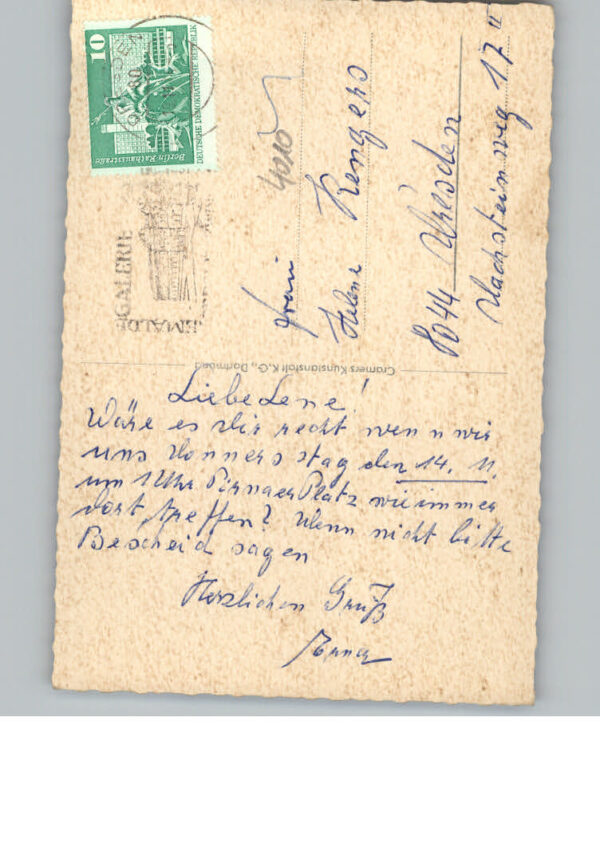 10
Berlin-Rathausstraße
DEUTSCHE DEMOKRATISCHE REPUBLIK
GALERIE
4010
Frau
Helene Rengers
8044 Dresden
Wachsteinweg 17"
Cramers Kunstanstalt K.G., Dortmund
Liebe Lene!
Wäre es Dir recht wenn wir
uns Donnerstag den 14. 11.
um 1 Uhr Pirnaer Platz wie immer
dort treffen? Wenn nicht bitte
Bescheid sagen
Herzlichen Gruß